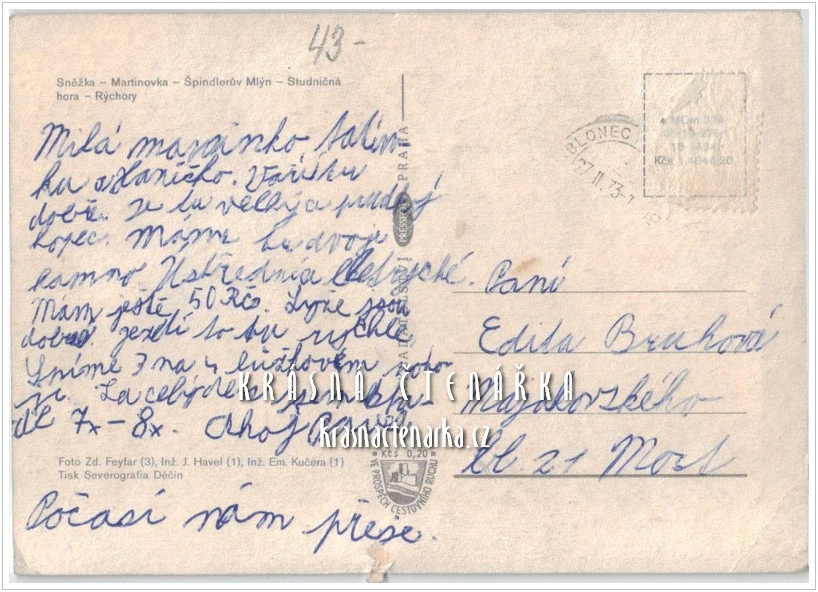 43-
Sněžka – Martinovka – Špindlerův Mlýn – Studničná
hora – Rýchory
Milá maminko tatín
ku a Haničko. Vaří tu
dobře. Je tu velkýa prudký
kopec. Máme tu dvoje
kamno Ústřednía Eletrycké.
Mám ještě 50 Kčs. Lyže jsou
dobré jezdí to tu rychle.
Spíme 7 na 4 lůžkovém poko
ji. Za celý den jsem
dl 7x – 8x. Ahoj
Foto Zd. Feyfar (3), Inž. J. Havel (1), Inž. Em. Kučera (1)
Tisk Severografia Děčín
Počasí nám přeje.
PRESSFOTO
PRAHA
KČS 0,20
VE PROSPĚCH CESTOVNÍHO RUCHU
BLONEC
27.II.73-
Kčs 1,40+0,20
Paní
Edita Bruhová
Majakovského
bl. 21 Most
KRÁSNÁ ČTENÁŘKA
krasnactenarka.cz